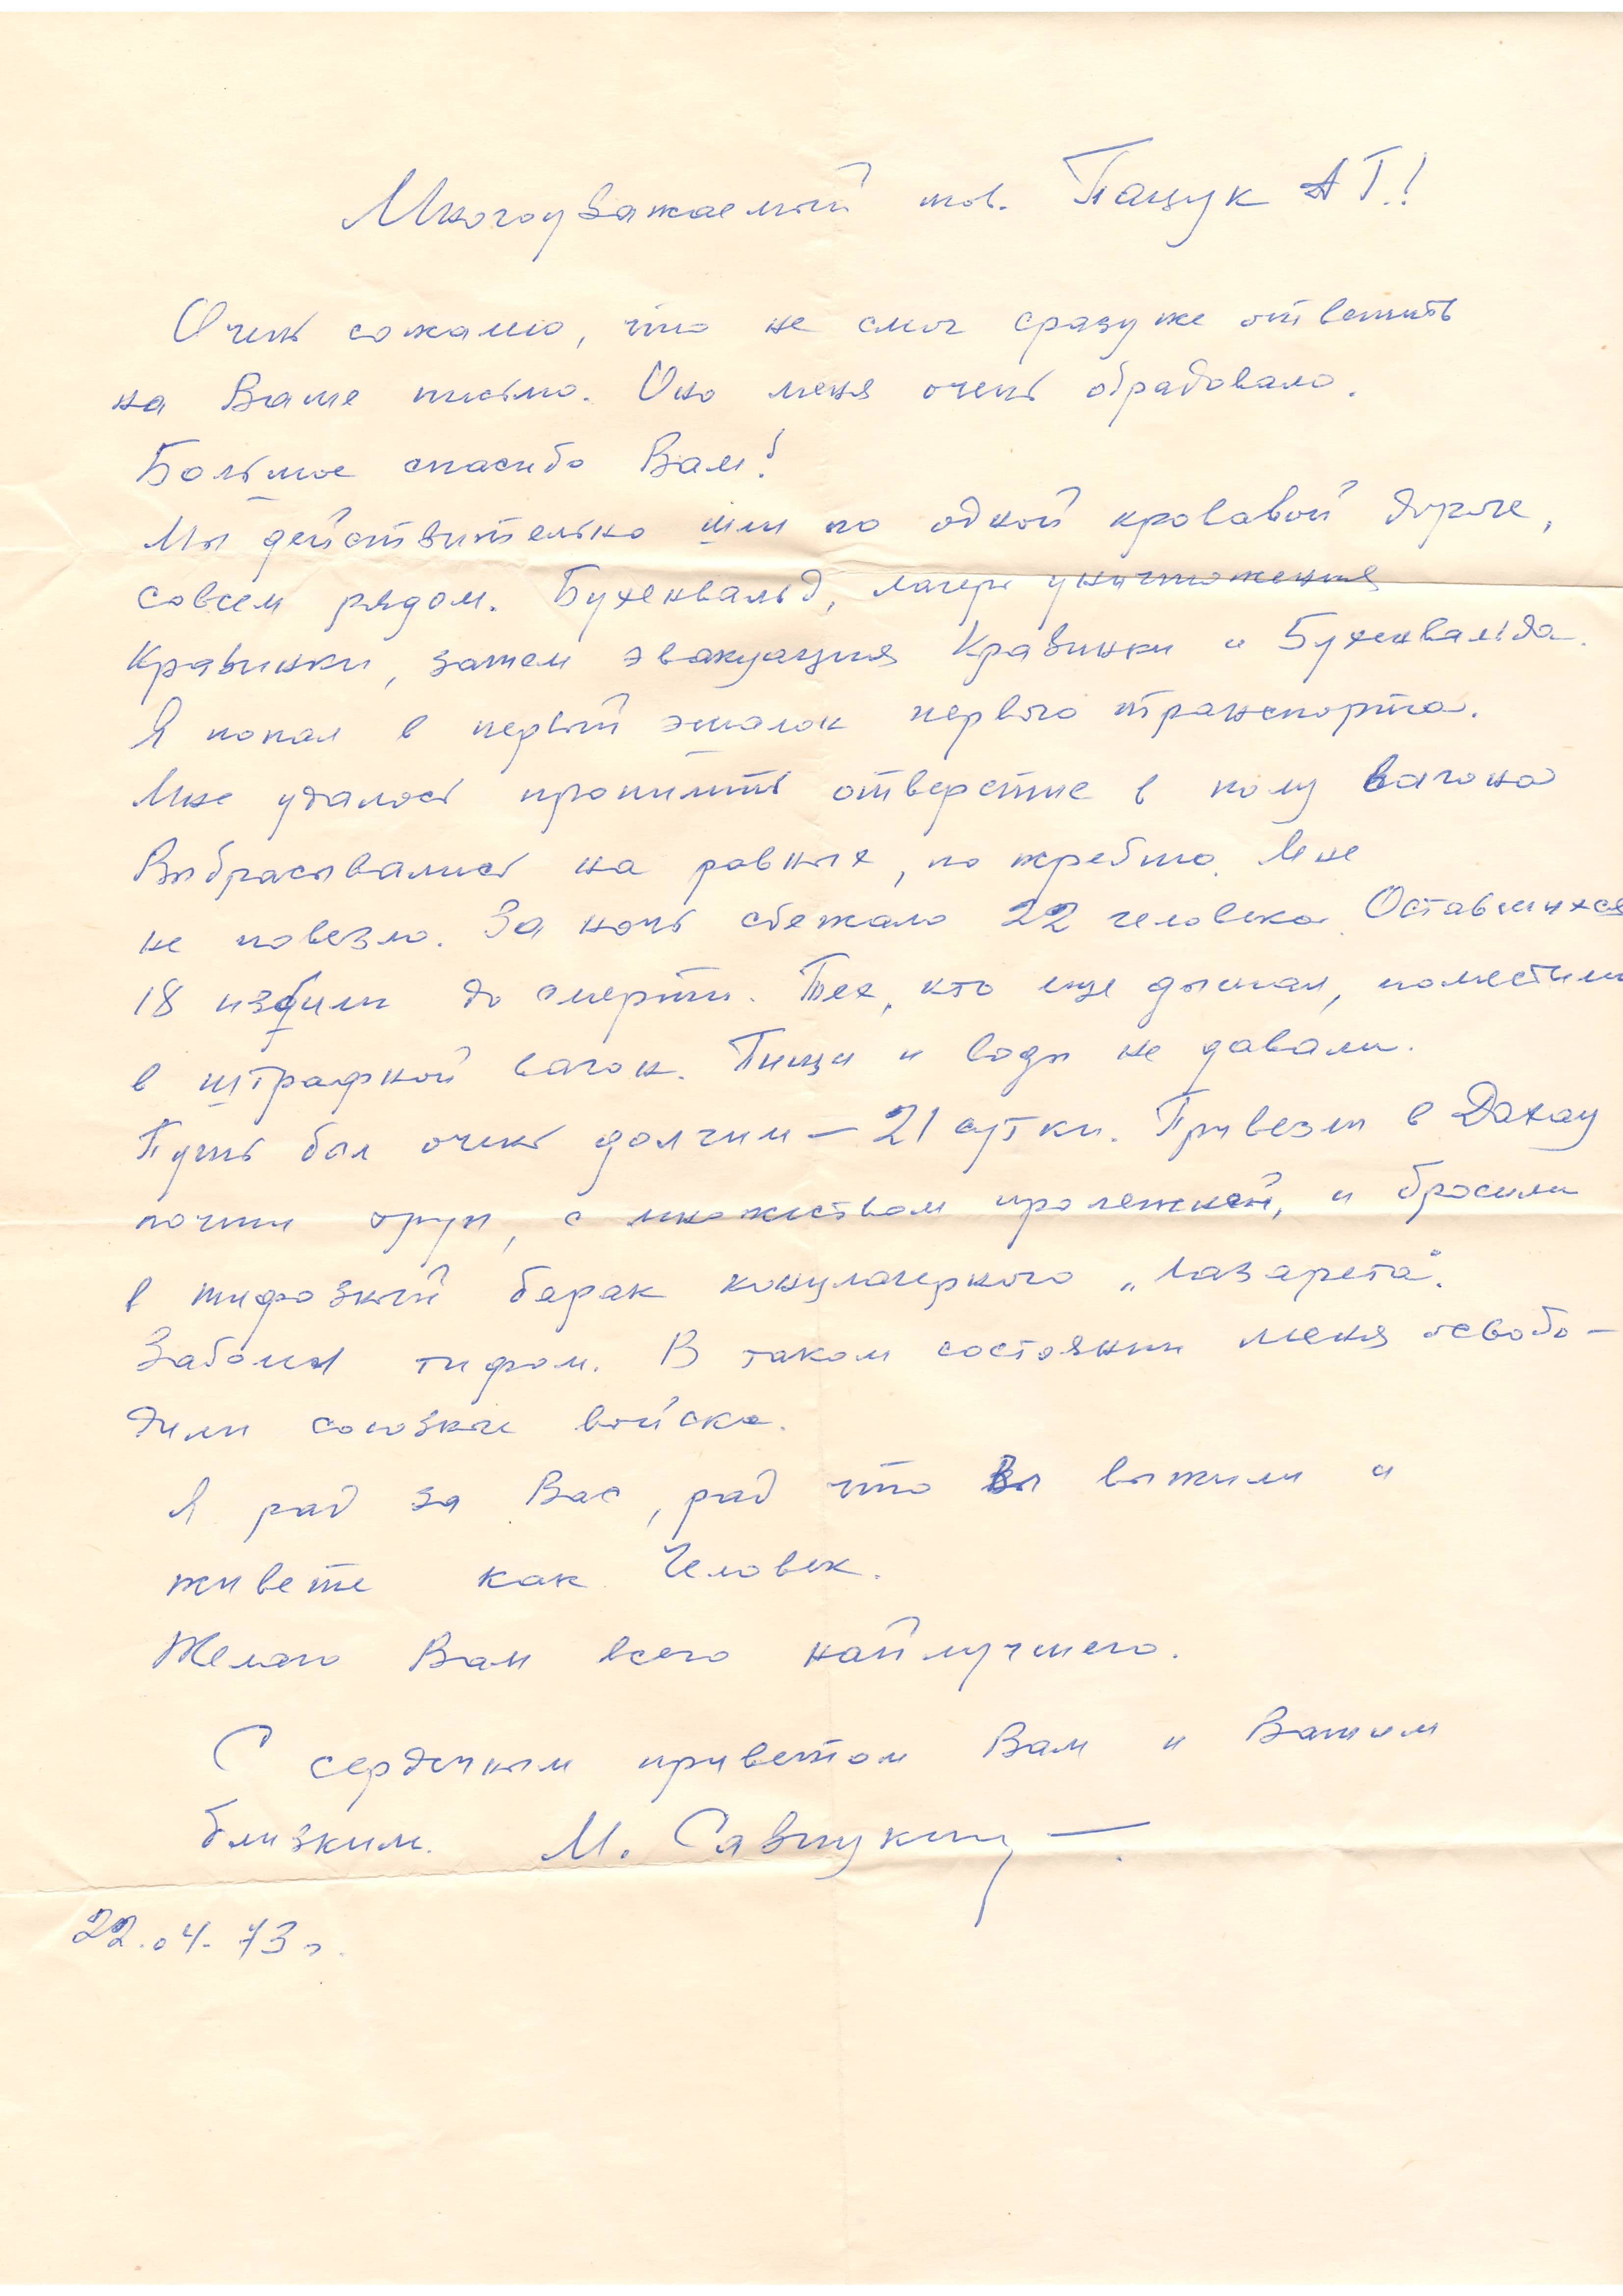 Многоуважаемый тов. Пащук АГ!
Очень сожалею, что не смог сразу же ответить
на Ваше письмо. Оно меня очень обрадовало.
Большое спасибо Вам!
Мы действительно шли по одной кровавой дороге,
совсем рядом. Бухенвальд, лагерь уничтожения
Кравинки, затем эвакуация Кравинки и Бухенвальда.
Я попал в первый эшалон первого транспорта.
Мне удалось пропилить отверстие в полу вагона
Выбрасывались на равных, по жребию. Мне
не повезло. За ночь сбежало 22 человека. Оставшихся
18 избили до смерти. Тех, кто еще дышал, поместили
в штрафной вагон. Пищи и воды не давали.
Путь был очень долгим – 21 сутки. Привезли в Дахау
почти труп, с множеством пролежней, и бросили
в тифозный барак концлагерного „лазарета".
Заболел тифом. В таком состоянии меня освобо-
дили союзные войска.
Я рад за Вас, рад что Вы выжили и
живете как Человек.
Желаю Вам всего найлучшего.
С сердечным приветом Вам и Вашим
близким. М.
22.04.73 г.